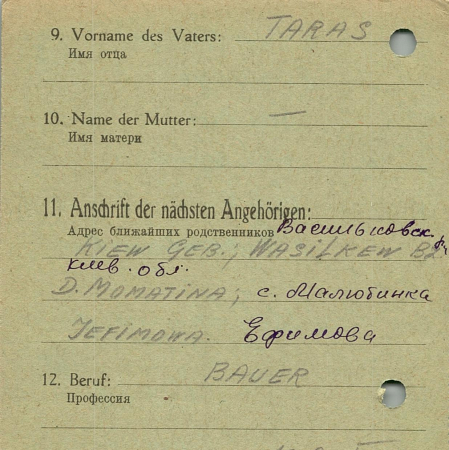 9. Vorname des Vaters: TARAS
Имя отца
10. Name der Mutter: —
Имя матери
11. Anschrift der nächsten Angehörigen:
Адрес ближайших родственников Васильковск.
KIEW GEB.; WASILKEW BZ
киев. обл.
D. MOMATINA; с. Малютинка
JEFIMOWA. Ефимова
12. Beruf: BAUER
Профессия